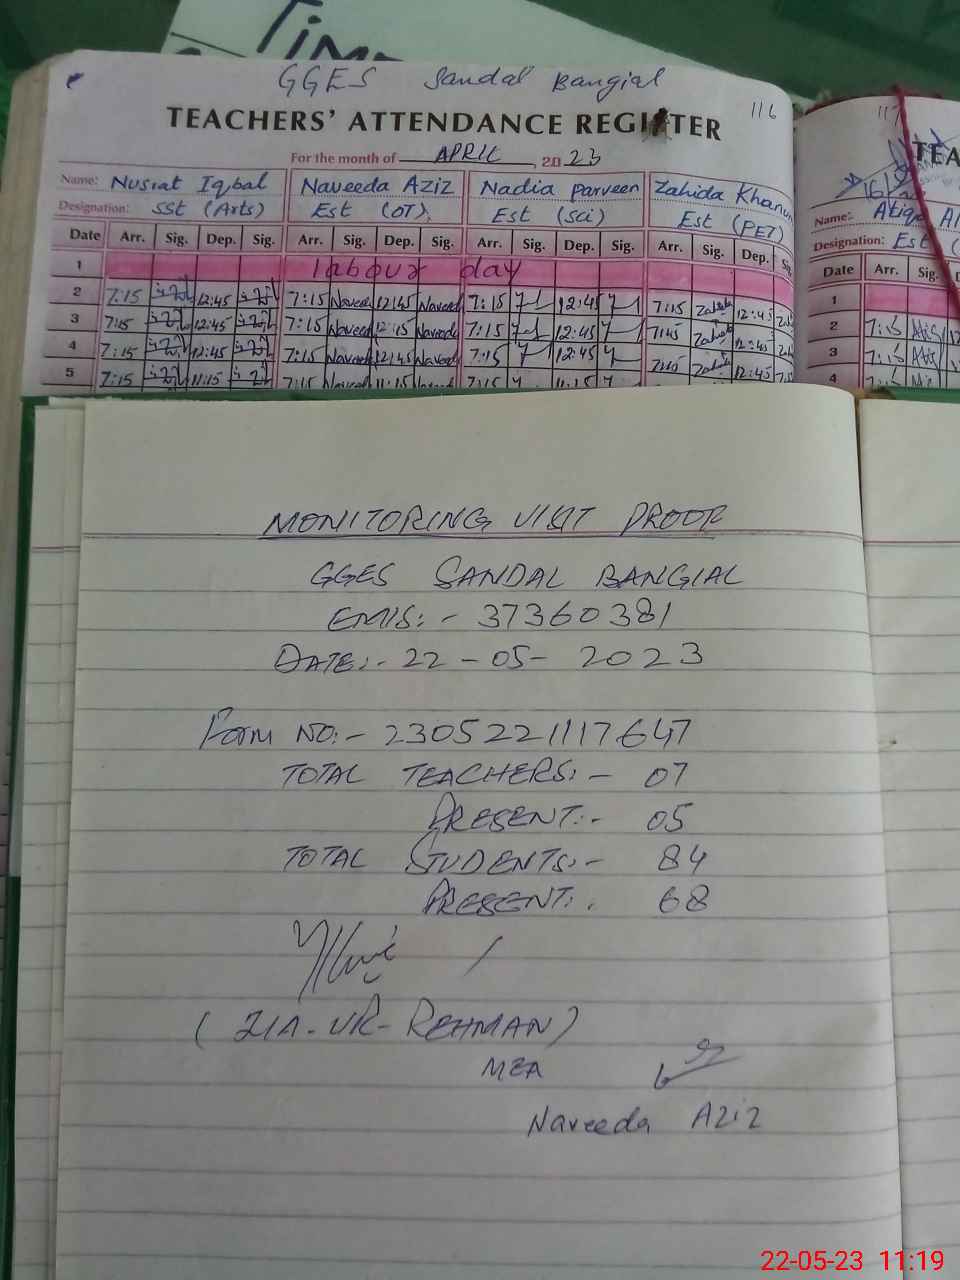 Tim
GGES Sandal Bangial
116
TEACHERS' ATTENDANCE REGISTER
For the month of APRIL, 2023
Name: Nusrat Iqbal Naveeda Aziz Nadia Parveen Zahida Khanum
Designation: SSt (Arts) Est (OT) Est (Sci) Est (PET)
Date Arr. Sig. Dep. Sig. Arr. Sig. Dep. Sig. Arr. Sig. Dep. Sig. Arr. Sig. Dep. Si
1 labour day
2 7:15 12:45 7:15 Naveed 12:45 Naveed 7:15 12:45 7:15 Zaheb 12:45
3 7:15 12:45 7:15 Naveed 12:45 Naveed 7:15 12:45 7:45 Zaheb 12:45
4 7:15 12:45 7:15 Naveed 12:45 Naveed 7:15 12:45 12:45
5 7:15 11:15 7:15 Naveed 11:15 Naveed 7:15 11:15 7:15 Zaheb 12:45
117
TEA
Name: Atiqa
Designation: Est
Date Arr. Sig.
1
2 7:15
3 7:15
4
MONITORING VISIT PROOF
GGES SANDAL BANGIAL
EMIS:- 37360381
DATE:- 22-05-2023
Form NO:- 2305221117647
TOTAL TEACHERS:- 07
PRESENT:- 05
TOTAL STUDENTS:- 84
PRESENT:- 68
(ZIA-UR-REHMAN)
MEA
Naveeda Aziz
22-05-23 11:19